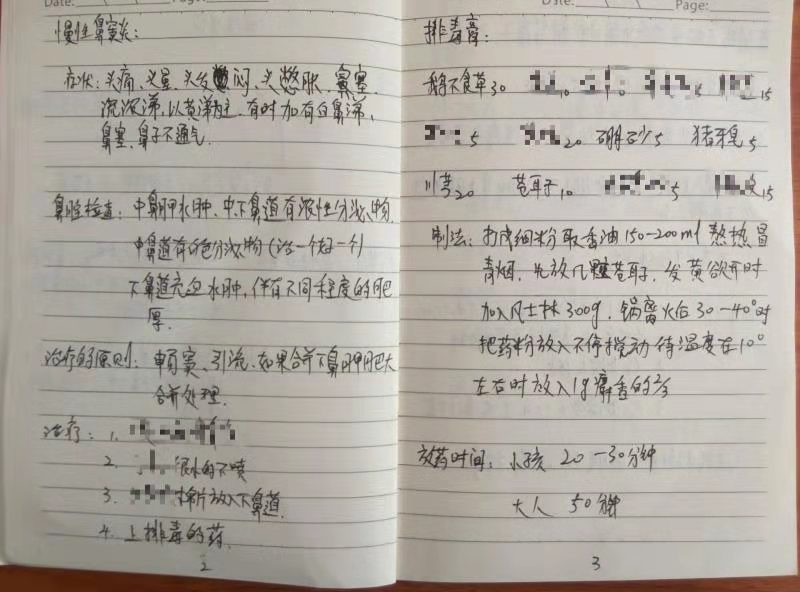 Date: Page:
慢性鼻窦炎:
症状:头痛、头晕、头发闷、头憋胀、鼻塞
流浓涕,以黄涕为主,有时加有白鼻涕,
鼻塞、鼻子不通气.
鼻腔检查: 中鼻甲水肿、中、下鼻道有浓性分泌物.
中鼻道有白色分泌物(治一个好一个)
下鼻道充血水肿,伴有不同程度的肥
厚.
治疗的原则: 窦、引流、如果合并下鼻甲肥大
合并处理.
治疗: 1.
2. 很水的不喷
3. 棉片放入下鼻道.
4. 上排毒的药.
2
Date: Page:
排毒膏:
鹅不食草30 10 10 5 15
5 20 硼砂5 猪牙皂5
川芎20 苍耳子10 5 15
制法: 打成细粉取香油150-200ml 熬热冒
青烟,先放几颗苍耳子,发黄欲开时
加入凡士林300g, 锅离火后30-40°时
把药粉放入不停搅动待温度在10°
左右时放入1g麝香的2/3
放药时间: 小孩 20-30分钟
大人 50分钟
3